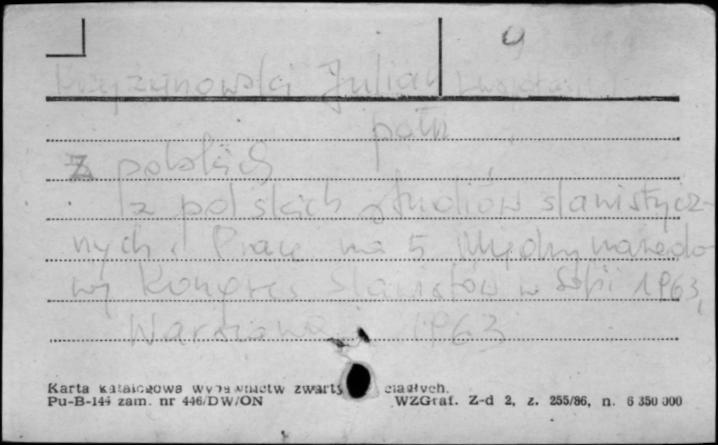 9
Krzyżanowski Julian
pod
Z polskich
Z polskich studiów slawistycz-
nych. Prace na 5 Międzynarodo-
wy Kongres Slawistów w Sofii 1963,
Warszawa 1963
Karta katalogowa wydawnictw zwartych ciągłych.
Pu-B-144 zam. nr 446/DW/ON WZGraf. Z-d 2, z. 255/86, n. 6 350 000